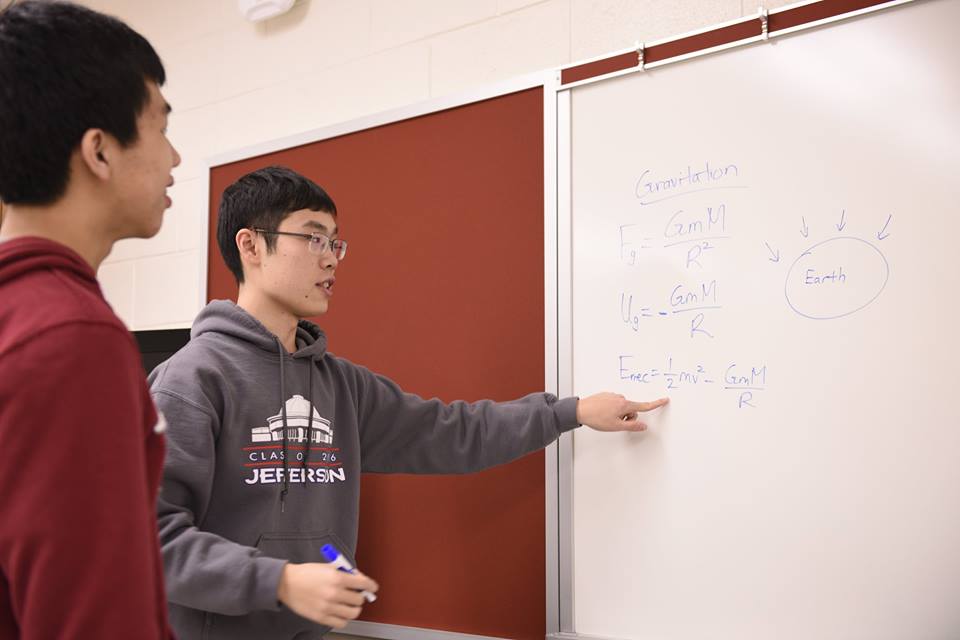 Gravitation
Fg = GmM / R²
Earth
Ug = - GmM / R
Emec = ½mv² - GmM / R
CLASS OF 2016
JEFFERSON